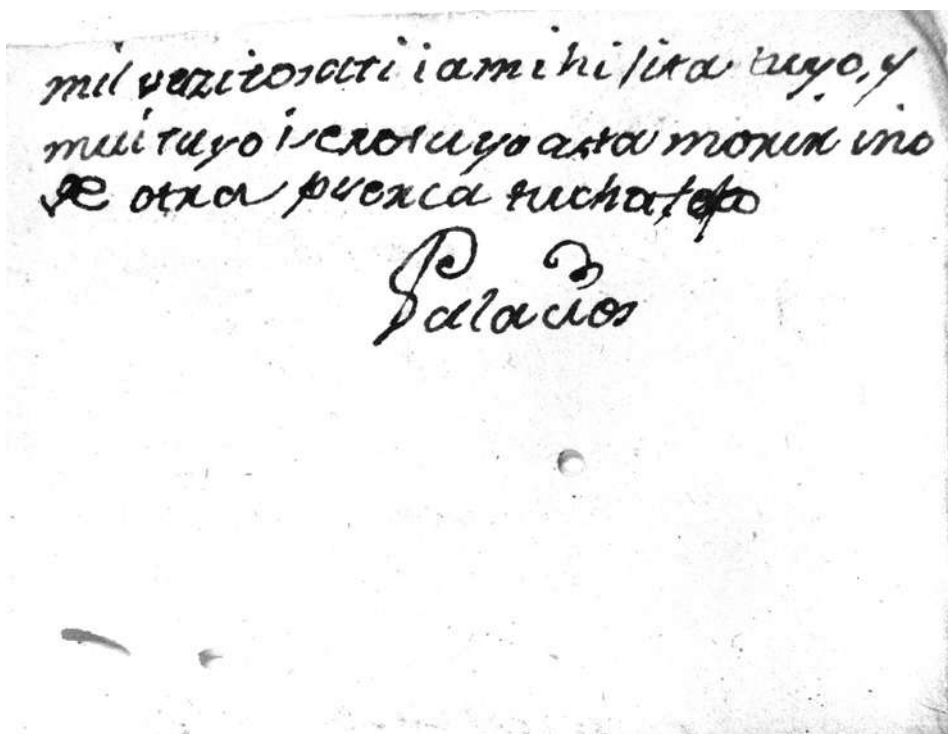 mil vezitos ati i ami hijita tuyo, y
mui tuyo i sere tuyo asta morir ino
de otra puerca tu chato
Palacios